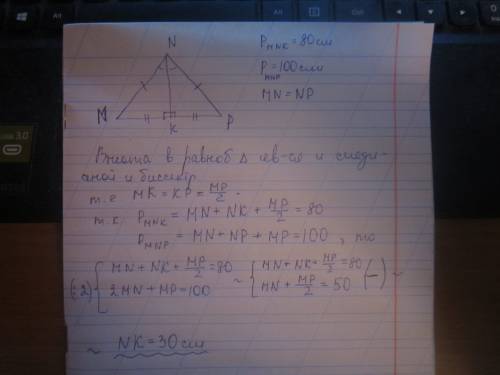 N
M
K
P
P_MNK = 80 см
P_MNP = 100 см
MN = NP
Высота в равноб Δ яв-ся и меди-
аной и биссект.
т.е MK = KP = MP/2.
т.к. P_MNK = MN + NK + MP/2 = 80
P_MNP = MN + NP + MP = 100, то
{ MN + NK + MP/2 = 80 ~ { MN + NK + MP/2 = 80
(:2) { 2MN + MP = 100 { MN + MP/2 = 50 (−) ~
~ NK = 30 см
3.0
Alt